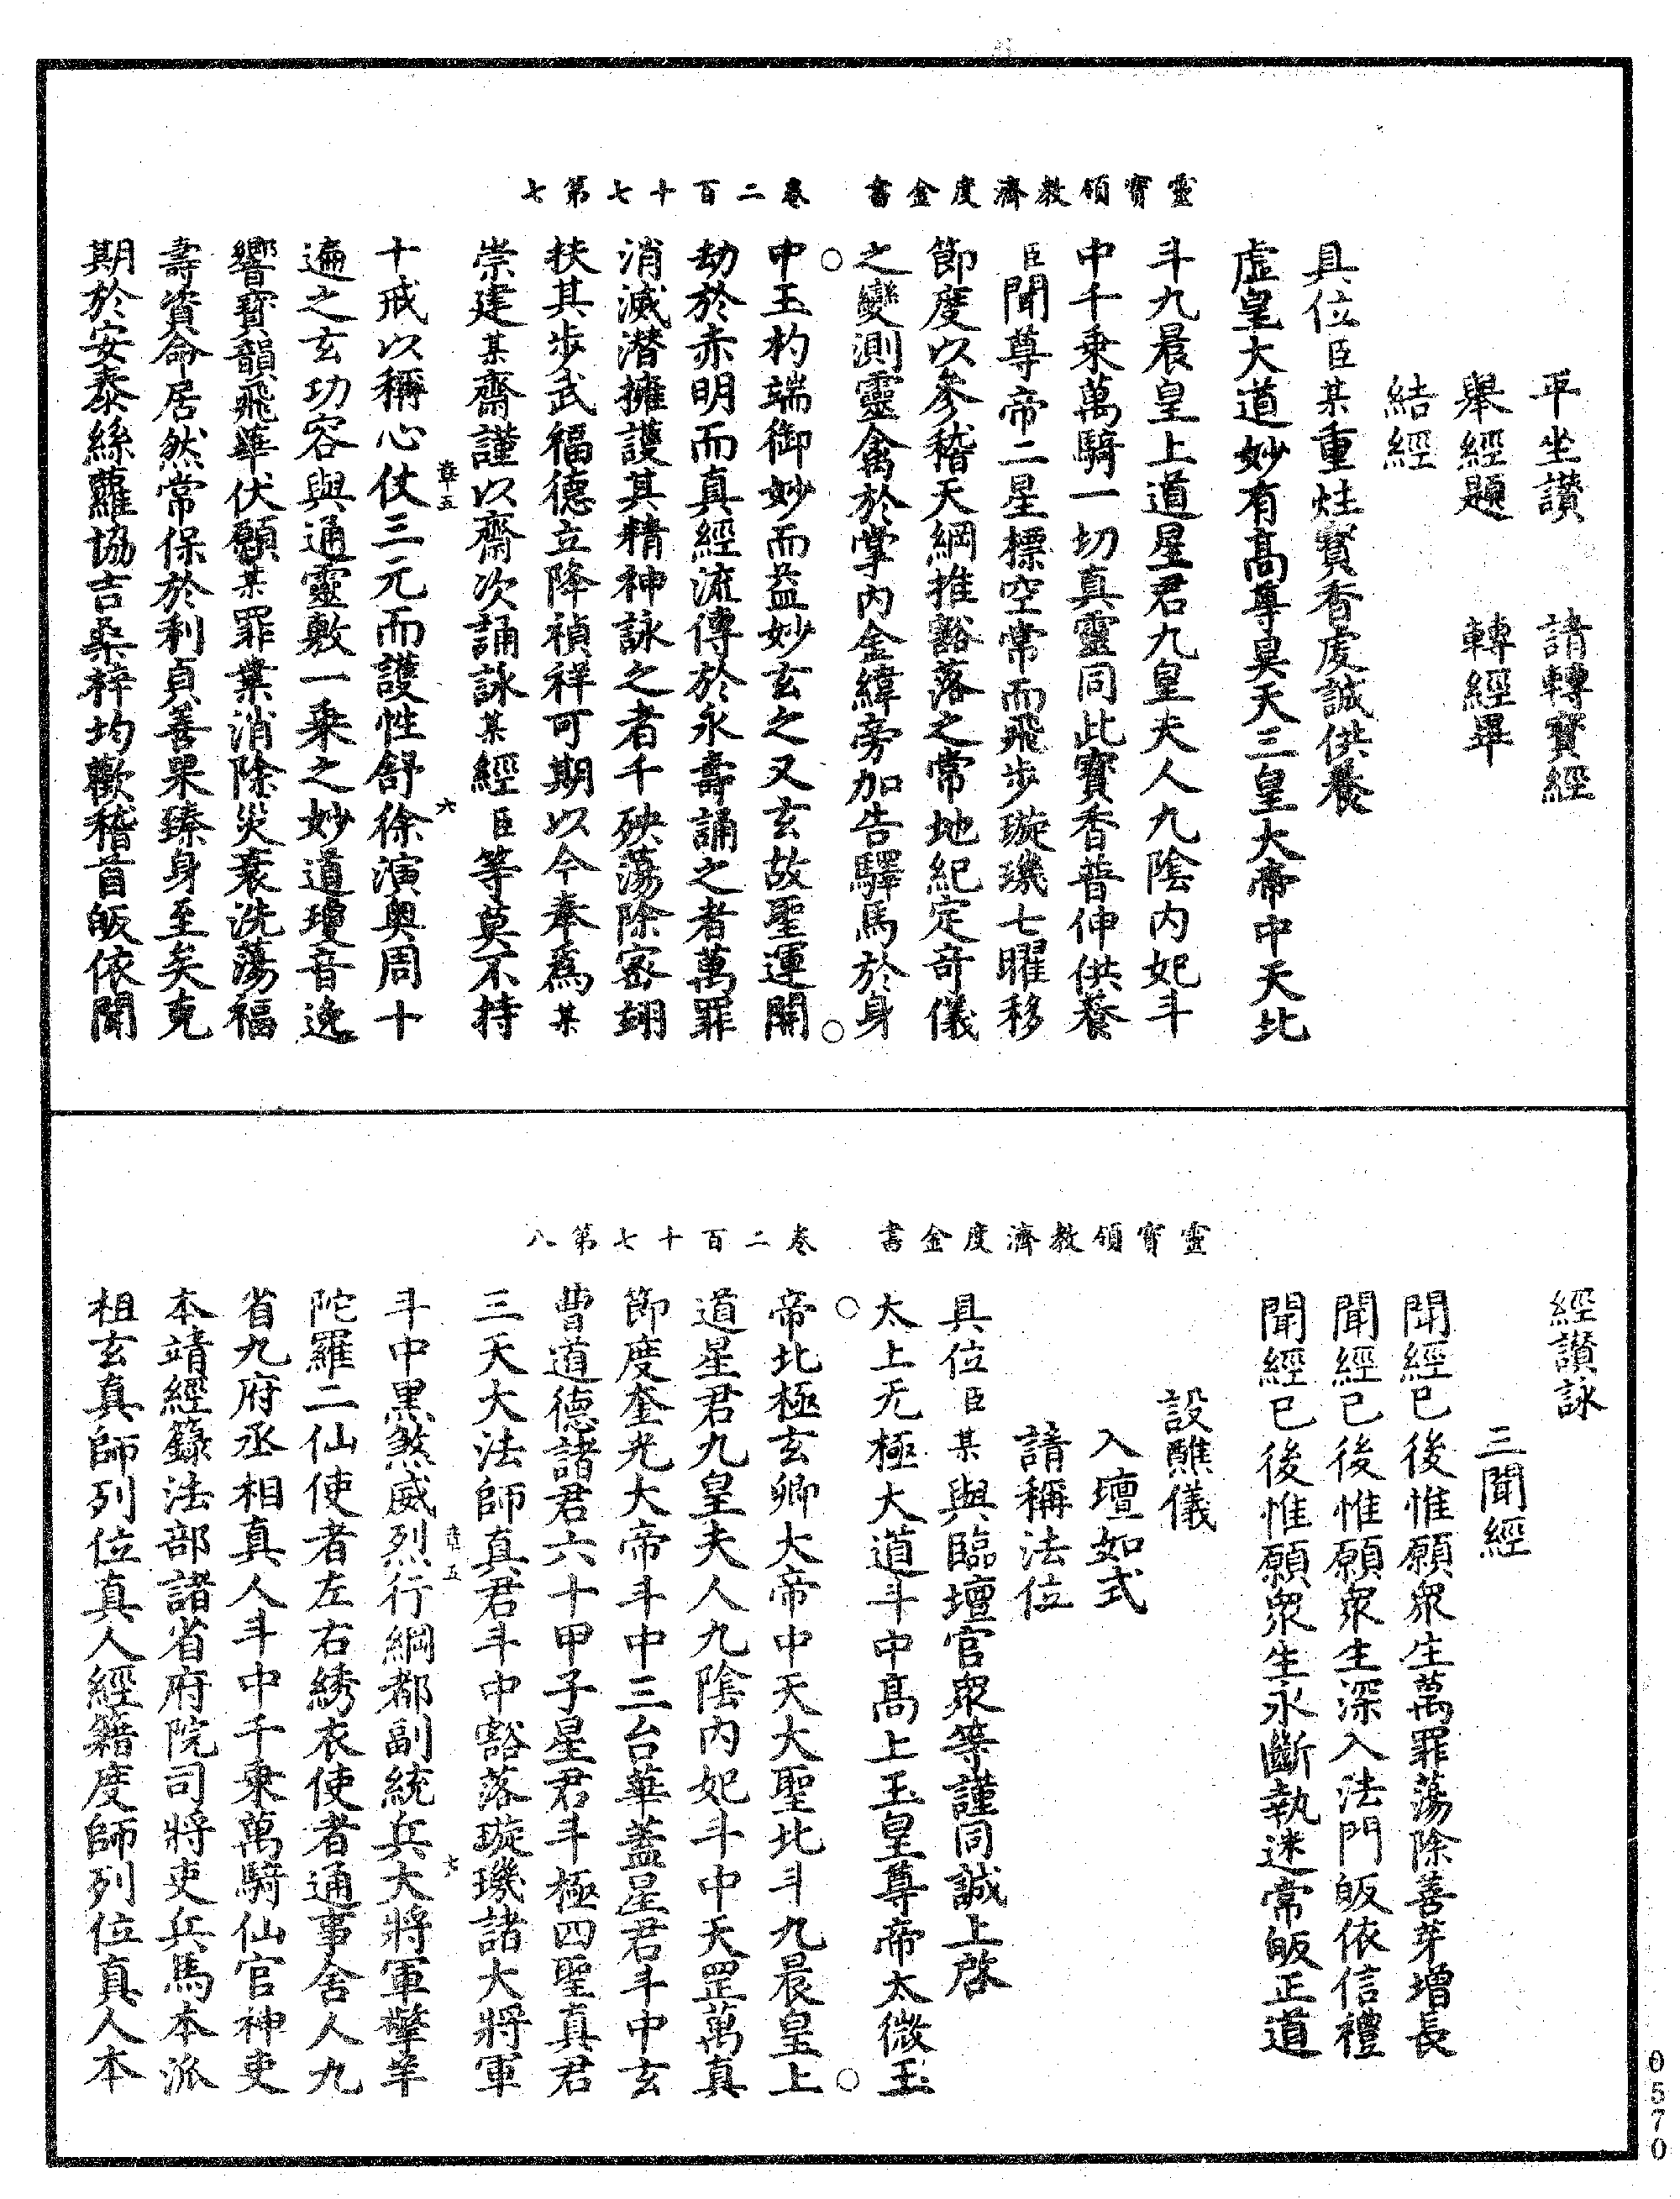 靈寶領教濟度金書　卷二百七十七第七
平坐讚　請轉寶經
舉經題　轉經畢
結經
具位臣某重炷寶香虔誠供養
虛皇大道妙有高尊昊天三皇大帝中天北
斗九晨皇上道星君九皇夫人九陰內妃斗
中千乘萬騎一切真靈同此寶香普伸供養
臣聞尊帝二星摽空常而飛步璇璣七曜移
節度以參稽天綱推豁落之常地紀定奇儀
之變測靈禽於掌內金緯旁加告驛馬於身
中玉杓端御妙而益妙玄之又玄故聖運開
劫於赤明而真經流傳於永壽誦之者萬罪
消滅潛擁護其精神詠之者千殃蕩除密翊
扶其步武福德立降禎祥可期以今奉為某
崇建某齋謹以齋次誦詠某經臣等莫不持
十戒以稱心仗三元而護性舒徐演奧周十
遍之玄功容與通靈敷一乘之妙道瓊音逸
響寶韻飛華伏願某罪業消除災衰洗蕩福
壽資命居然常保於利貞善果臻身至矣克
期於安泰絲蘿協吉桑梓均歡稽首皈依聞
章五
六
靈寶領教濟度金書　卷二百七十七第八
經讚詠
三聞經
聞經已後惟願眾生萬罪蕩除善芽增長
聞經已後惟願眾生深入法門皈依信禮
聞經已後惟願眾生永斷執迷常皈正道
設醮儀
入壇如式
請稱法位
具位臣某與臨壇官眾等謹同誠上啓
太上无極大道斗中高上玉皇尊帝太微玉
帝北極玄卿大帝中天大聖北斗九晨皇上
道星君九皇夫人九陰內妃斗中天罡萬真
節度奎光大帝斗中三台華蓋星君斗中玄
曹道德諸君六十甲子星君斗極四聖真君
三天大法師真君斗中豁落璇璣諸大將軍
斗中黑煞威烈行綱都副統兵大將軍擎羊
陀羅二仙使者左右綉衣使者通事舍人九
省九府丞相真人斗中千乘萬騎仙官神吏
本靖經籙法部諸省府院司將吏兵馬本派
祖玄真師列位真人經籍度師列位真人本
章五
七
0570